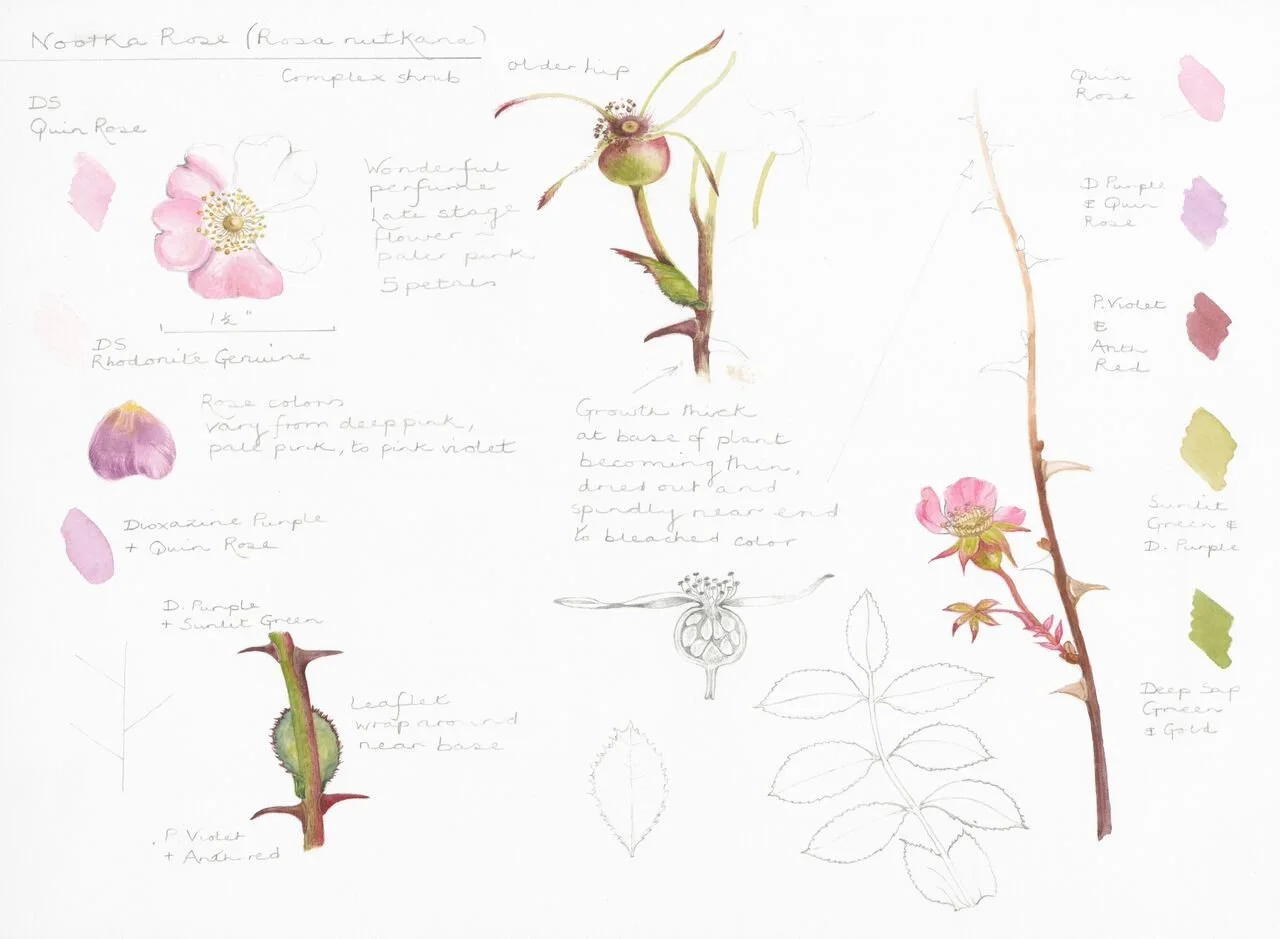 Nootka Rose (Rosa nutkana)
Complex shrub
older hip
DS
Quin Rose
Wonderful
perfume
Late stage
flower –
paler pink
5 petals
1½"
DS
Rhodonite Genuine
Rose colors
vary from deep pink,
pale pink, to pink violet
Dioxazine Purple
+ Quin Rose
D. Purple
+ Sunlit Green
Leaflet
wrap around
near base
P. Violet
+ Anth red
Growth thick
at base of plant
becoming thin,
dried out and
spindly near end
to bleached color
Quin
Rose
D Purple
& Quin
Rose
P. Violet
&
Anth
Red
Sunlit
Green &
D. Purple
Deep Sap
Green
& Gold